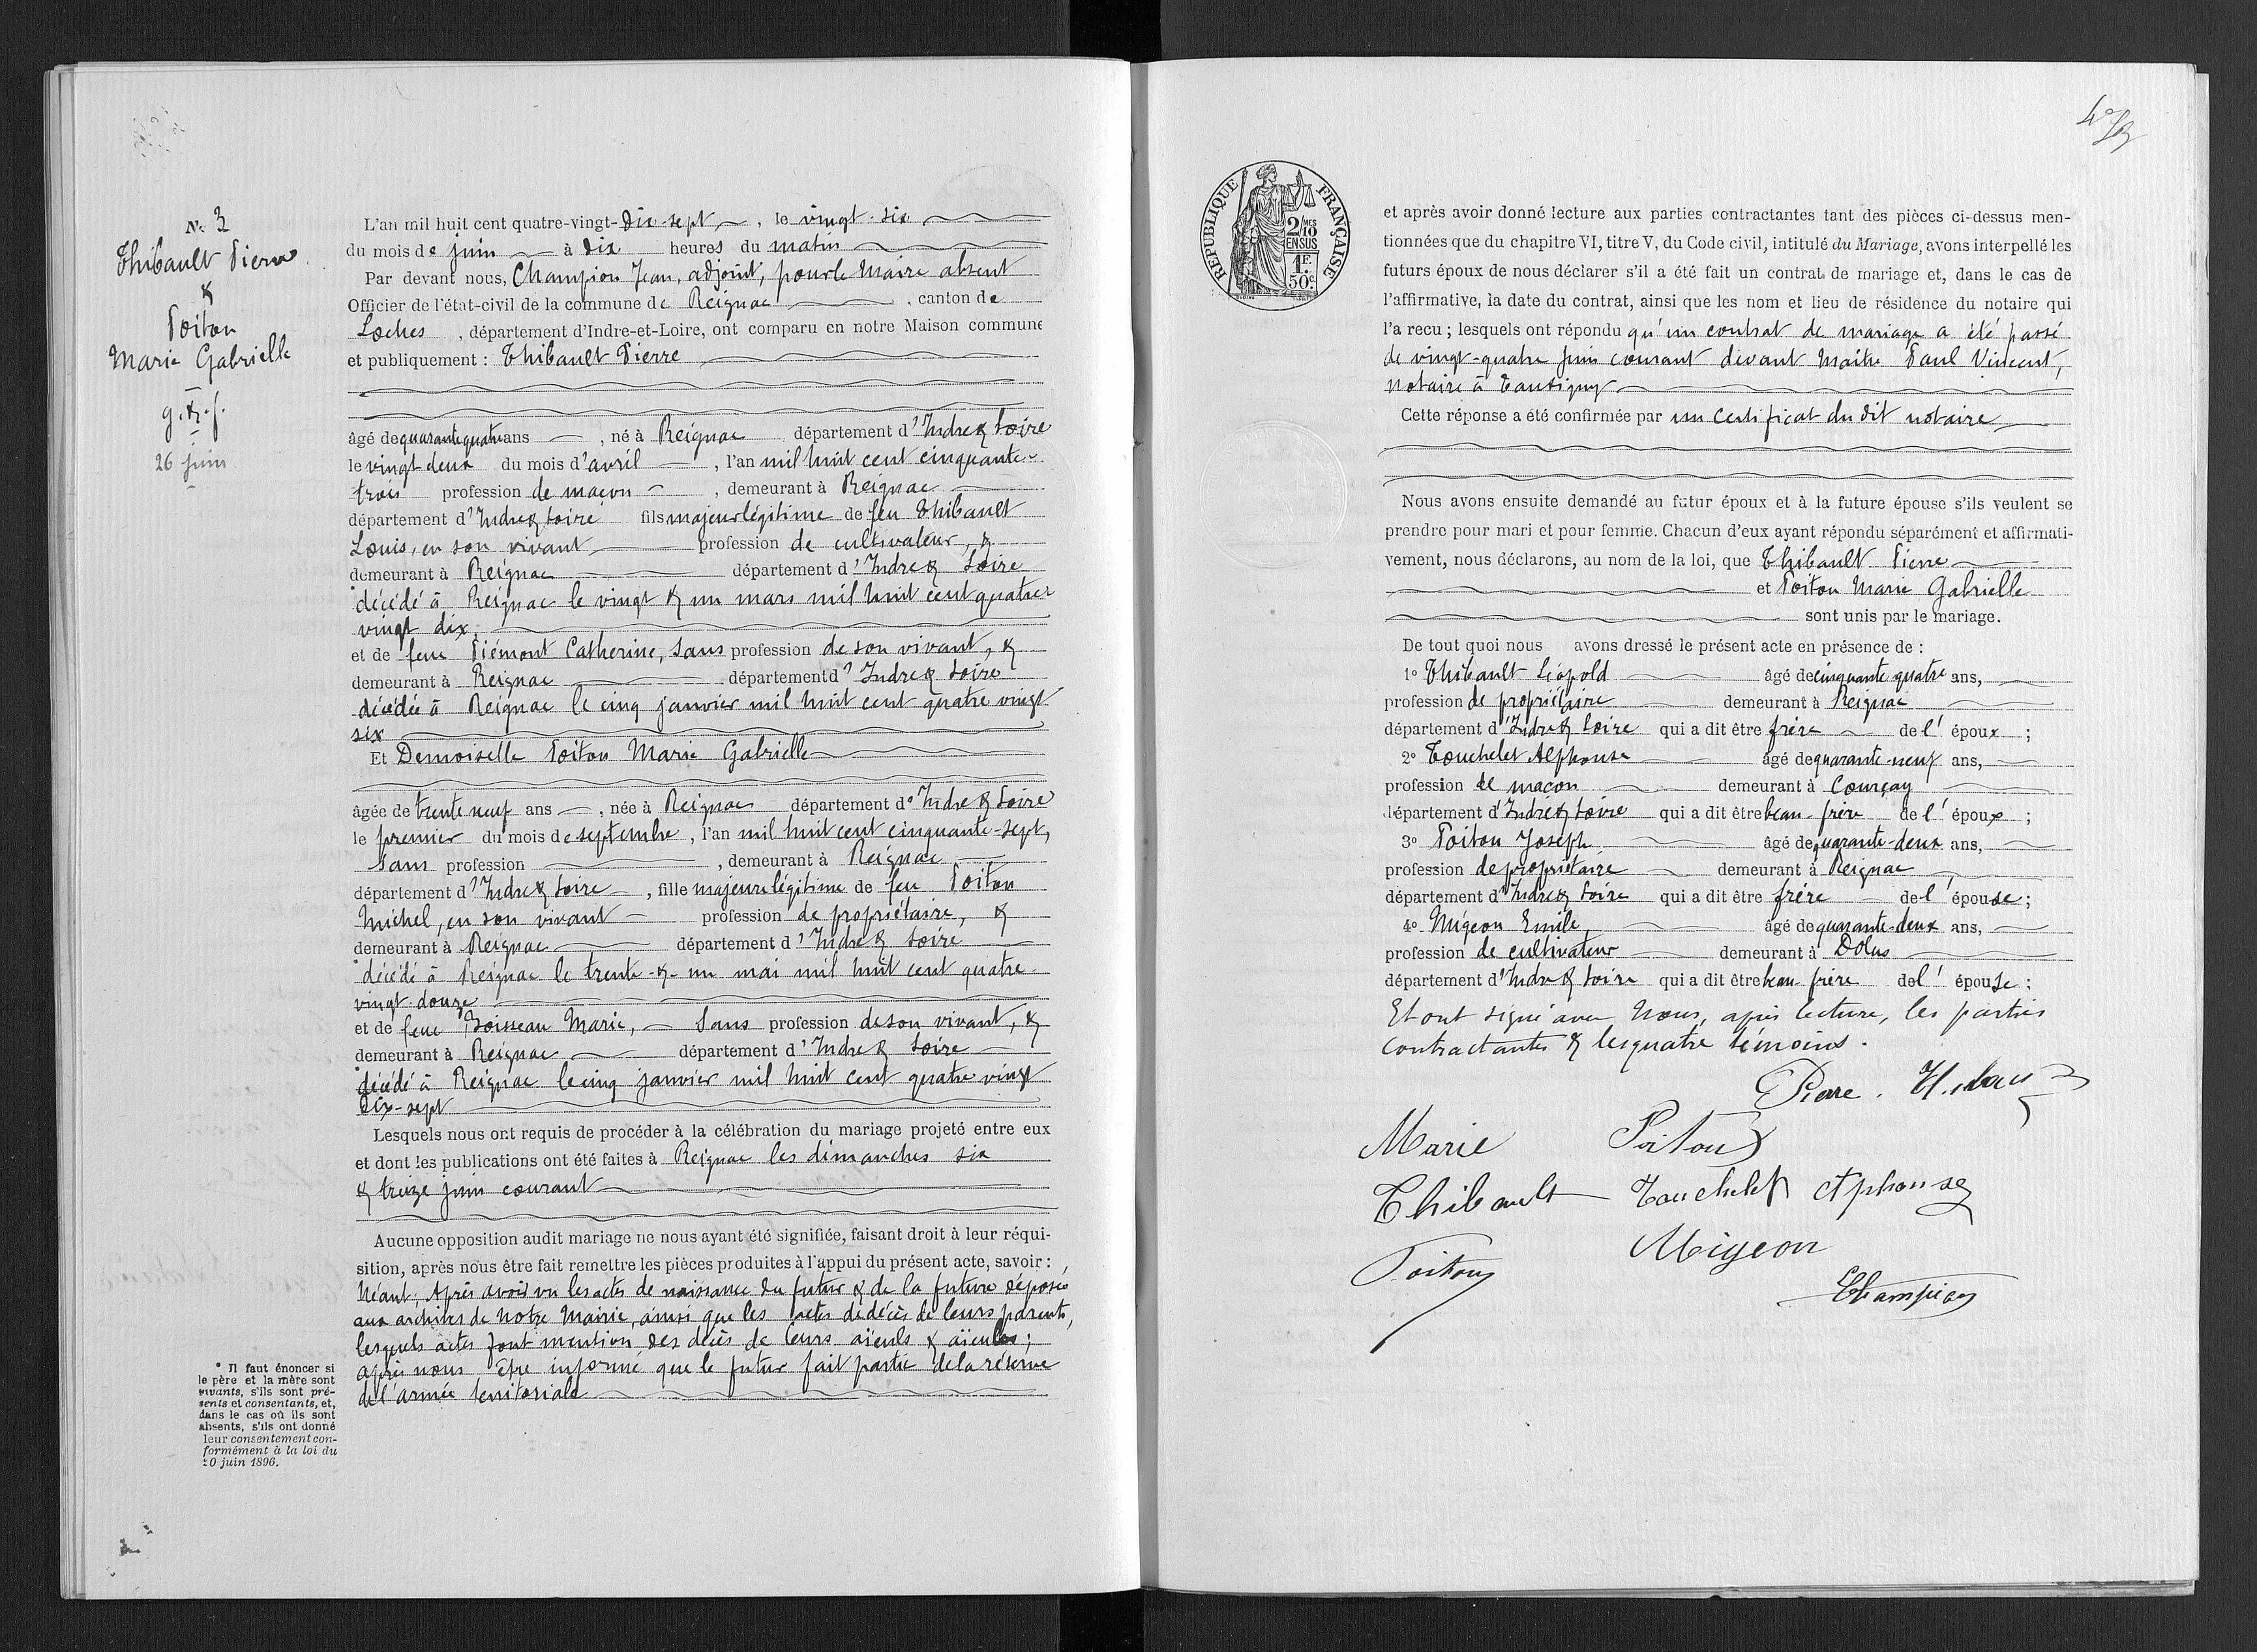 N: 3
Thibault Pierre
&
Poitou
Marie Gabrielle
26 juin
L'an mil huit cent quatre-vingt-dix-sept, le vingt-six
du mois de juin à dix heures du matin
Par devant nous, Champion Jean, adjoint, pour le Maire absent
Officier de l'état-civil de la commune de Reignac, canton de
Loches, département d'Indre-et-Loire, ont comparu en notre Maison commune
et publiquement : Thibault Pierre
âgé de quarante quatre ans, né à Reignac département d'Indre & Loire
le vingt deux du mois d'avril, l'an mil huit cent cinquante-
trois profession de maçon, demeurant à Reignac
département d'Indre & Loire fils majeur légitime de feu Thibault
Louis, en son vivant profession de cultivateur, &
demeurant à Reignac département d'Indre & Loire
*décédé à Reignac le vingt & un mars mil huit cent quatre
vingt dix,
et de feue Piémont Catherine, sans profession de son vivant, &
demeurant à Reignac département d'Indre & Loire
décédée à Reignac le cinq janvier mil huit cent quatre vingt
six
Et Demoiselle Poitou Marie Gabrielle
âgée de trente neuf ans, née à Reignac département d'Indre & Loire
le premier du mois de septembre, l'an mil huit cent cinquante-sept,
sans profession, demeurant à Reignac
département d'Indre & Loire, fille majeure légitime de feu Poitou
Michel, en son vivant profession de propriétaire, &
demeurant à Reignac département d'Indre & Loire
*décédé à Reignac le trente-&-un mai mil huit cent quatre-
vingt-douze
et de feue Boisseau Marie, sans profession de son vivant, &
demeurant à Reignac département d'Indre & Loire
*décédé à Reignac le cinq janvier mil huit cent quatre vingt
dix-sept
Lesquels nous ont requis de procéder à la célébration du mariage projeté entre eux
et dont les publications ont été faites à Reignac les dimanches six
& treize juin courant
Aucune opposition audit mariage ne nous ayant été signifiée, faisant droit à leur réqui-
sition, après nous être fait remettre les pièces produites à l'appui du présent acte, savoir :
Néant; Après avoir vu les actes de naissance du futur & de la future déposés
aux archives de notre Mairie, ainsi que les actes de décès de leurs parents,
lesquels actes font mention des décès de leurs aïeuls & aïeules;
après nous être informé que le futur fait partie de la réserve
de l'armée territoriale
* Il faut énoncer si
le père et la mère sont
vivants, s'ils sont pré-
sents et consentants, et,
dans le cas où ils sont
absents, s'ils ont donné
leur consentement con-
formément à la loi du
20 juin 1896.
RÉPUBLIQUE FRANÇAISE
2/10 MES
EN SUS
1F.
50c.
et après avoir donné lecture aux parties contractantes tant des pièces ci-dessus men-
tionnées que du chapitre VI, titre V, du Code civil, intitulé du Mariage, avons interpellé les
futurs époux de nous déclarer s'il a été fait un contrat de mariage et, dans le cas de
l'affirmative, la date du contrat, ainsi que les nom et lieu de résidence du notaire qui
l'a recu ; lesquels ont répondu qu'un contrat de mariage a été passé
de vingt-quatre juin courant devant Maître Paul Vincent,
notaire à Tauxigny
Cette réponse a été confirmée par un certificat du dit notaire
Nous avons ensuite demandé au futur époux et à la future épouse s'ils veulent se
prendre pour mari et pour femme. Chacun d'eux ayant répondu séparément et affirmati-
vement, nous déclarons, au nom de la loi, que Thibault Pierre
et Poitou Marie Gabrielle
sont unis par le mariage.
De tout quoi nous avons dressé le présent acte en présence de :
1° Thibault Léopold âgé de cinquante quatre ans,
profession de propriétaire demeurant à Reignac
département d'Indre & Loire qui a dit être frère de l'époux ;
2° Touchelet Alphonse âgé de quarante-neuf ans,
profession de maçon demeurant à Courçay
département d'Indre & Loire qui a dit être beau-frère de l'époux ;
3° Poitou Joseph âgé de quarante-deux ans,
profession de propriétaire demeurant à Reignac
département d'Indre & Loire qui a dit être frère de l'épouse ;
4° Migeon Emile âgé de quarante-deux ans,
profession de cultivateur demeurant à Dolus
département d'Indre & Loire qui a dit être beau-frère de l'épouse ;
Et ont signé avec Nous, après lecture, les parties
contractantes & les quatre témoins.
Pierre
Marie Poitou
Thibault Touchelet Alphonse
Migeon
Poitou
Champion